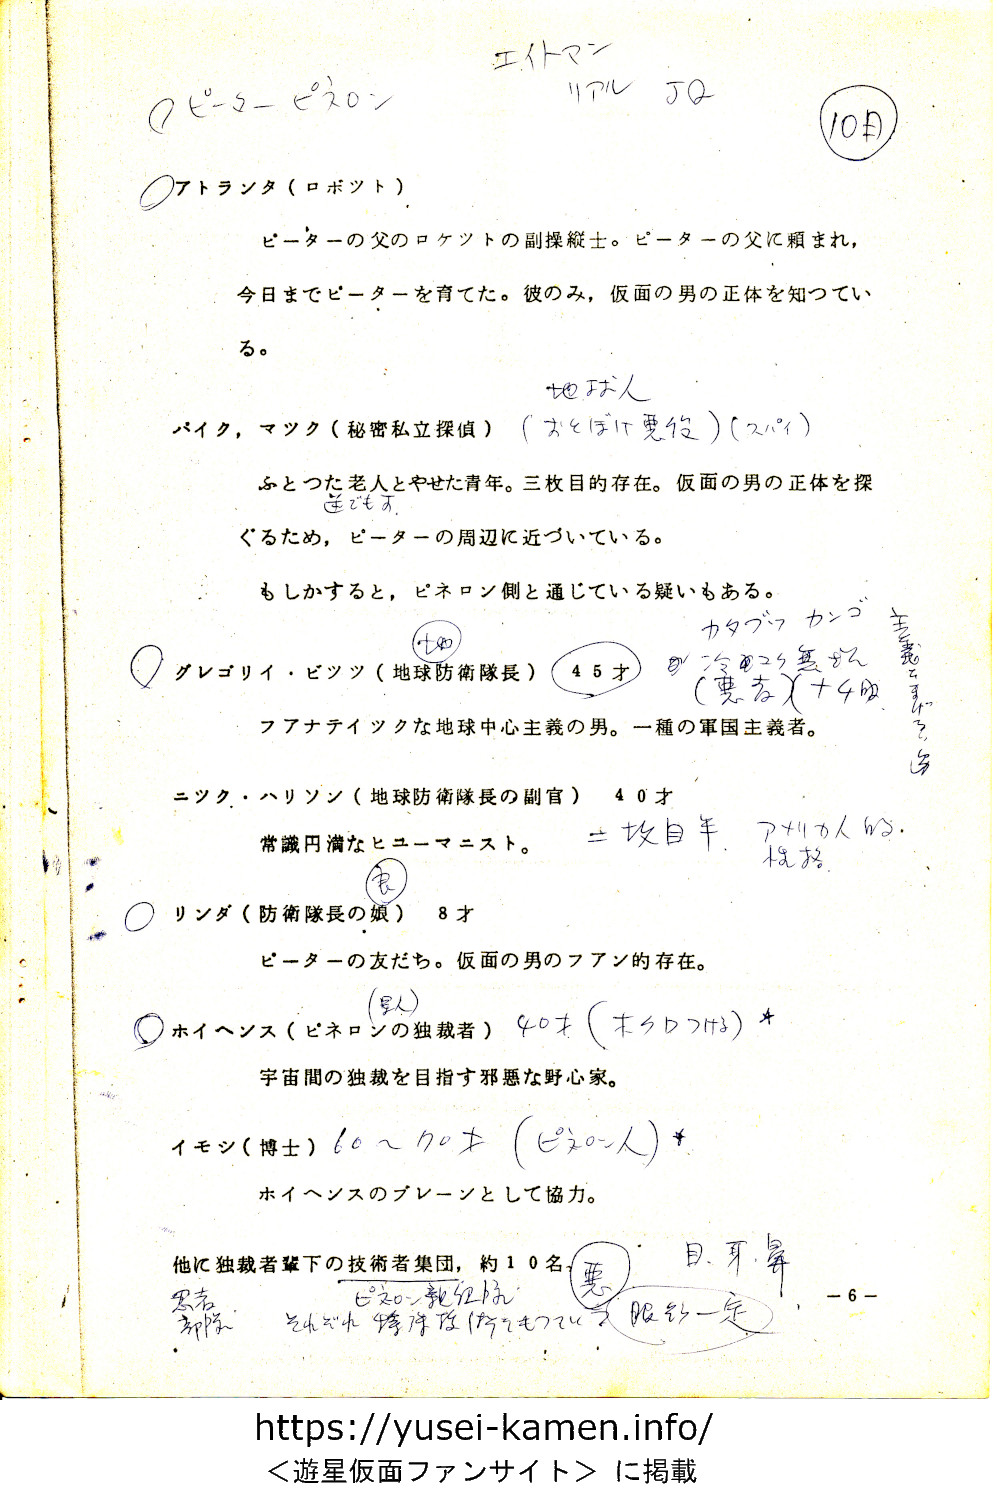 エイトマン
リアル JQ
ピーター ピネロン
10月
アトランタ(ロボツト)
ピーターの父のロケツトの副操縦士。ピーターの父に頼まれ,
今日までピーターを育てた。彼のみ,仮面の男の正体を知つてい
る。
地球人
パイク,マツク(秘密私立探偵) (おとぼけ悪役)(スパイ)
ふとつた老人とやせた青年。三枚目的存在。仮面の男の正体を探
逆でも可
ぐるため,ピーターの周辺に近づいている。
もしかすると,ピネロン側と通じている疑いもある。
カタブツ ガンコ
地
グレゴリイ・ビツツ(地球防衛隊長) 45才
(悪者)
フアナテイツクな地球中心主義の男。一種の軍国主義者。
ニツク・ハリソン(地球防衛隊長の副官) 40才
常識円満なヒユーマニスト。 二枚目半 アメリカ人的
性格
良
リンダ(防衛隊長の娘) 8才
ピーターの友だち。仮面の男のフアン的存在。
(星人)
ホイヘンス(ピネロンの独裁者) 40才(ホクロつける)*
宇宙間の独裁を目指す邪悪な野心家。
イモシ(博士) 60〜70才 (ピネロン人)*
ホイヘンスのブレーンとして協力。
目、耳、鼻
他に独裁者輩下の技術者集団,約10名、 悪
-6-
悪者 ピネロン親衛隊
部隊 それぞれ 特殊技術をもつている 服飾一定
https://yusei-kamen.info/
＜遊星仮面ファンサイト＞ に掲載